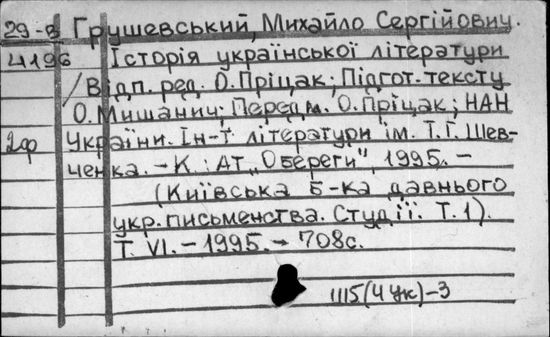 29-в Грушевський, Михайло Сергійович.
4196 Історія української літератури
/Відп. ред. О. Пріцак; Підгот. тексту
О. Мишанич; Передм. О. Пріцак; НАН
2ф України. Ін-т літератури ім. Т. Г. Шев-
ченка. – К.: АТ „Обереги", 1995. –
(Київська б-ка давнього
укр. письменства. Студії. Т. 1).
Т. VI. – 1995. – 708с.
1115(4Ук)-3